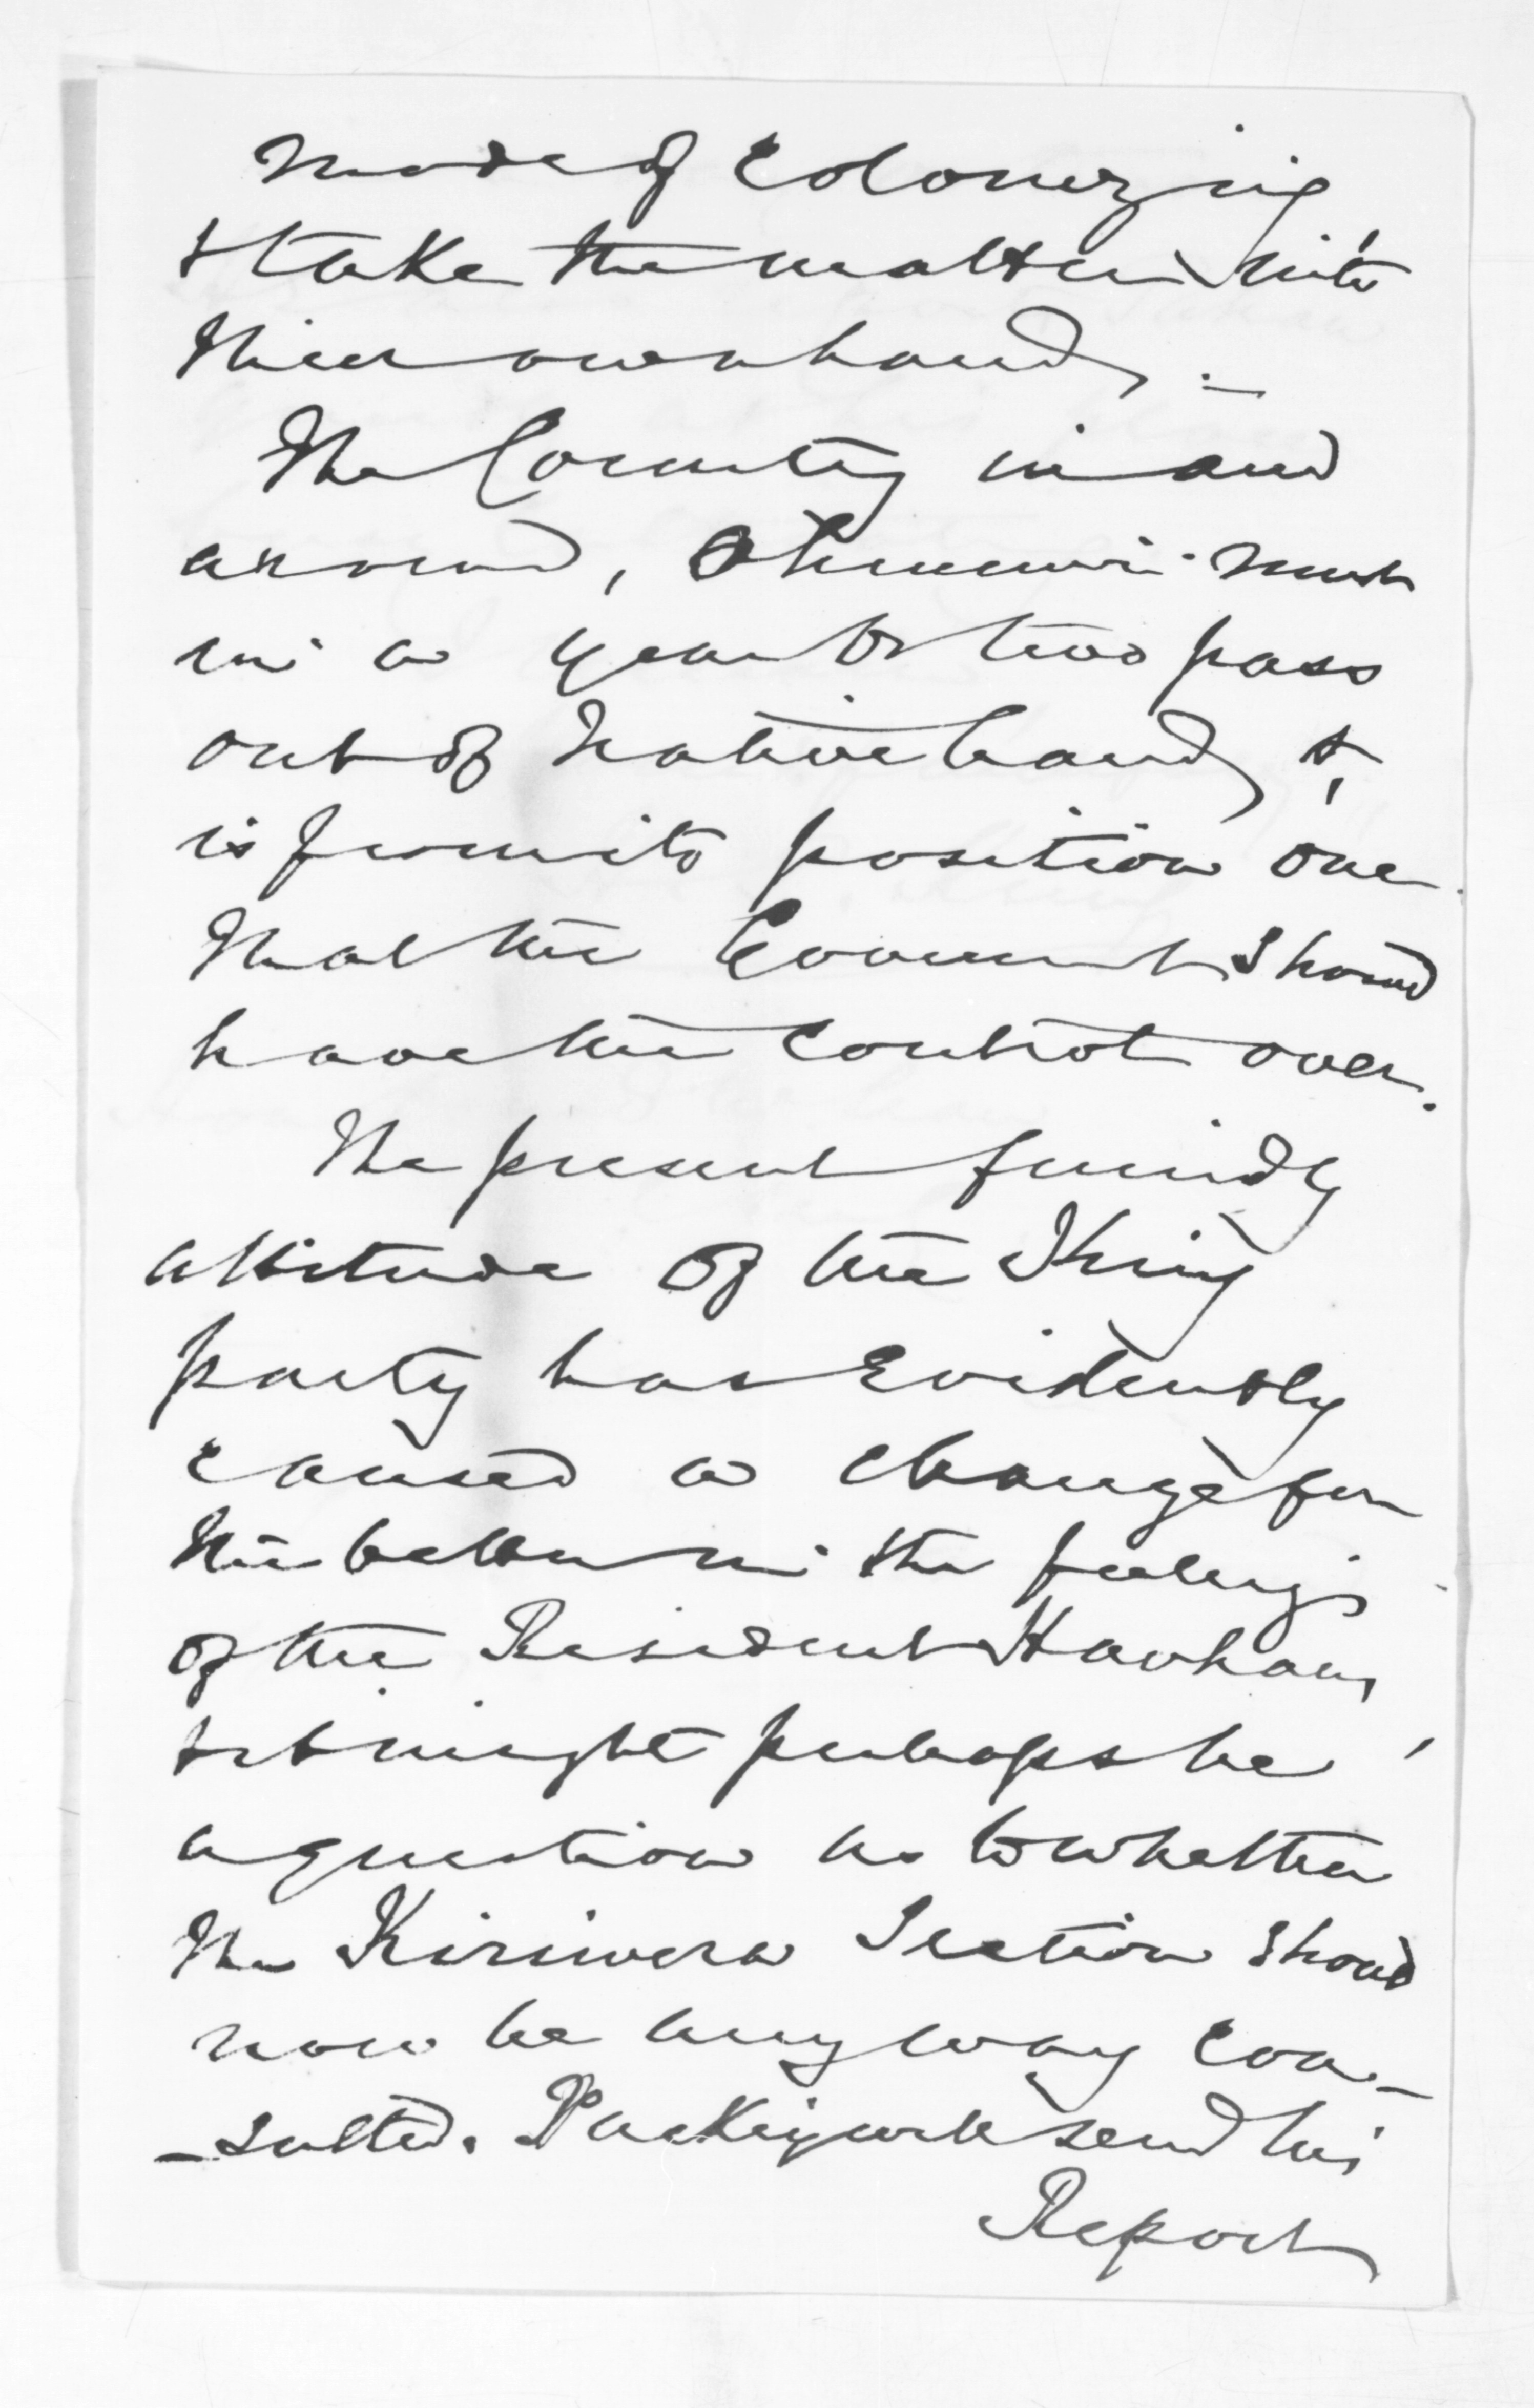 mode of Colonizing
& take the matter into
their own hands. -
The Country in and
around, Ohinemuri must
in a year or two pass
out of Native hands, &
is from its position one
that the Governmt should
have the control over.
The present friendly
attitude of the King
party has evidently
caused a change for
the better in the feelings
of the Resident Hauhaus,
& it might perhaps be
a question as to whether
the Kiriwera Section should
now be any way con-
-sulted. Puckey will send his
Report